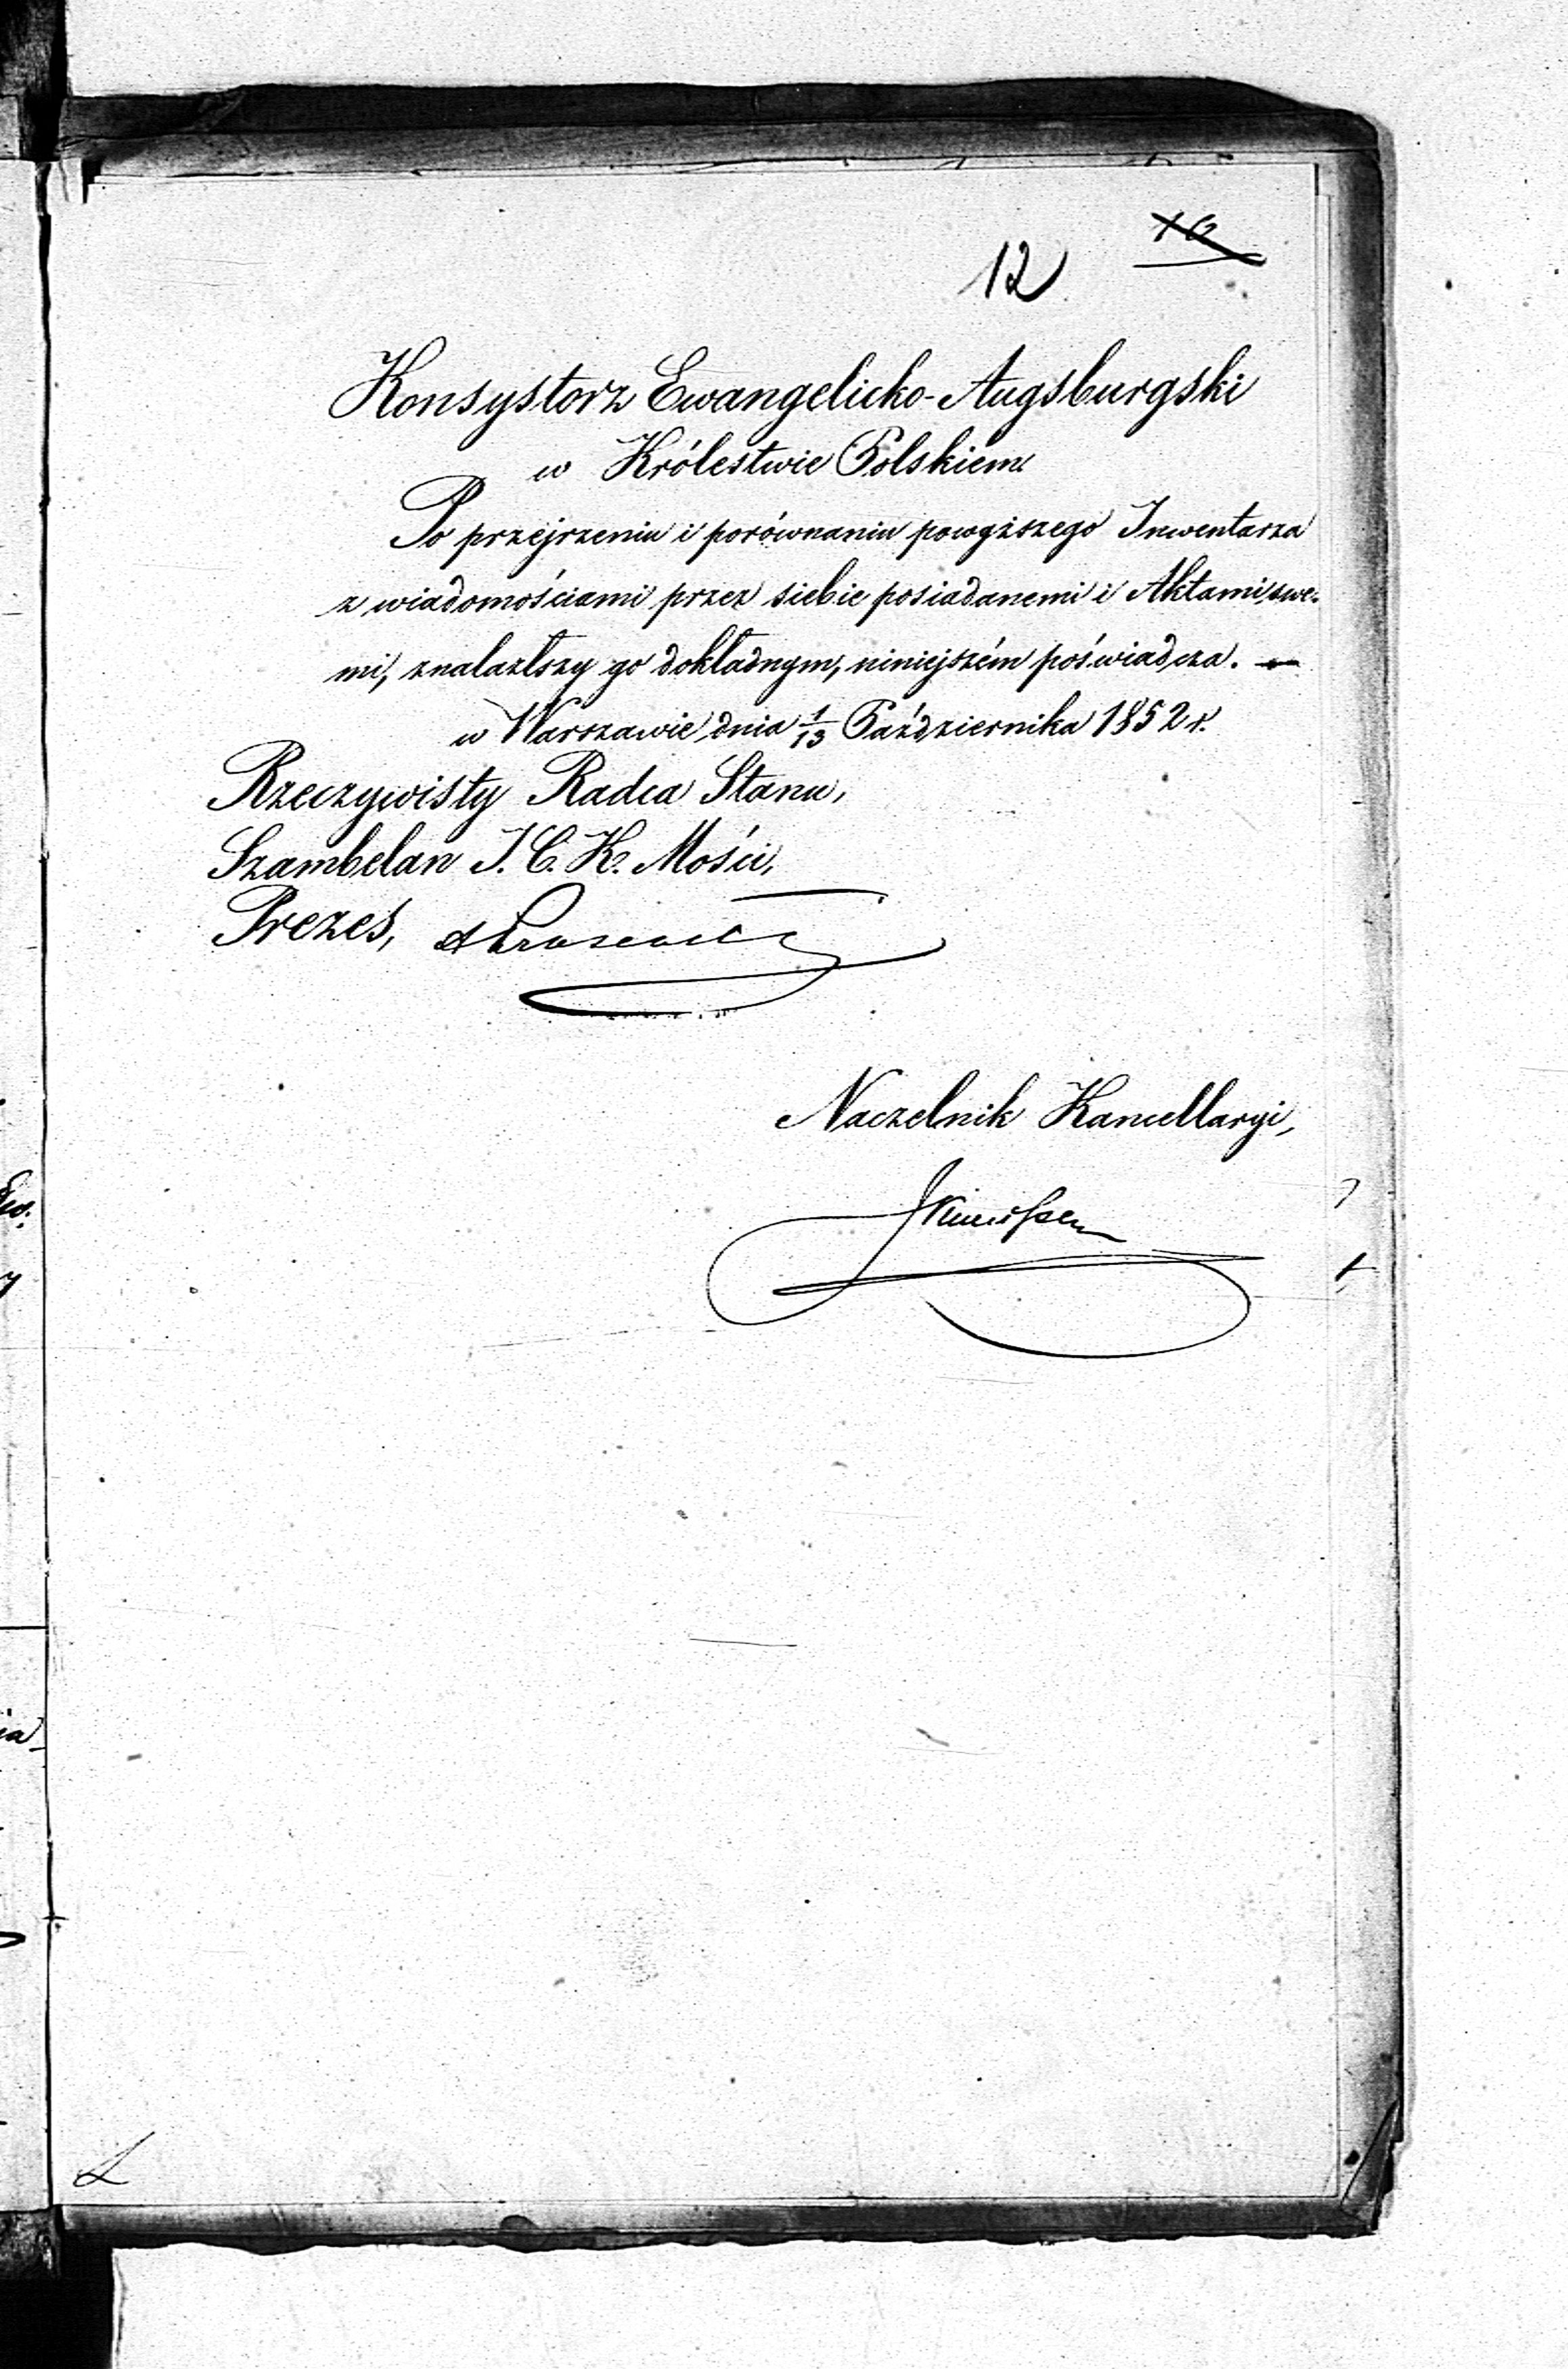 12
Konsystorz Ewangelicko-Augsburgski
w Królestwie Polskiem
Po przejrzeniu i porównaniu powyższego Inwentarza
z wiadomościami przez siebie posiadanemi i Aktami swe-
mi, znalazłszy go dokładnym, niniejszém poświadcza. —
w Warszawie dnia 1/13 Października 1852 r.
Rzeczywisty Radca Stanu,
Szambelan J. C. K. Mości,
Prezes,
Naczelnik Kancellaryi,